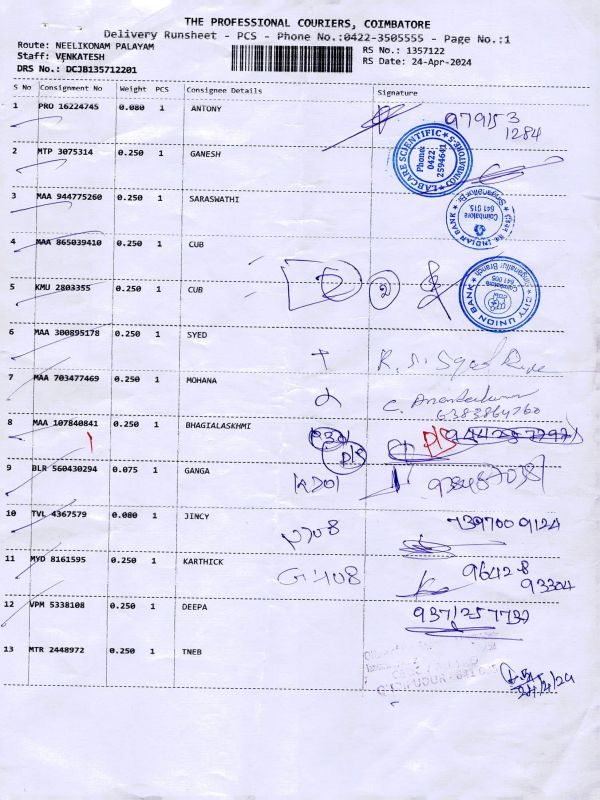 THE PROFESSIONAL COURIERS, COIMBATORE
Delivery Runsheet - PCS - Phone No.:0422-3505555 - Page No.:1
Route: NEELIKONAM PALAYAM
RS No.: 1357122
Staff: VENKATESH
RS Date: 24-Apr-2024
DRS No.: DCJB135712201
S No Consignment No Weight PCS Consignee Details Signature
1 PRO 16224745 0.080 1 ANTONY 979153
1284
2 MTP 3075314 0.250 1 GANESH
LABCARE SCIENTIFIC
Phone:
0422
2594641
COIMBATORE-5
3 MAA 944775260 0.250 1 SARASWATHI
INDIAN BANK
Coimbatore
641 015.
4 MAA 865039410 0.250 1 CUB
5 KMU 2803355 0.250 1 CUB 2
CITY UNION BANK
Singanallur Branch
Coimbatore
641 005
6 MAA 300895178 0.250 1 SYED
R. S. Syed
7 MAA 703477469 0.250 1 MOHANA
C.
6383864760
8 MAA 107840841 0.250 1 BHAGIALASKHMI D/S
D/S
9 BLR 560430294 0.075 1 GANGA
10 TVL 4367579 0.080 1 JINCY 7397009124
11 MYD 8161595 0.250 1 KARTHICK 96428
93304
12 VPM 5338108 0.250 1 DEEPA
13 MTR 2448972 0.250 1 TNEB
24/4/24